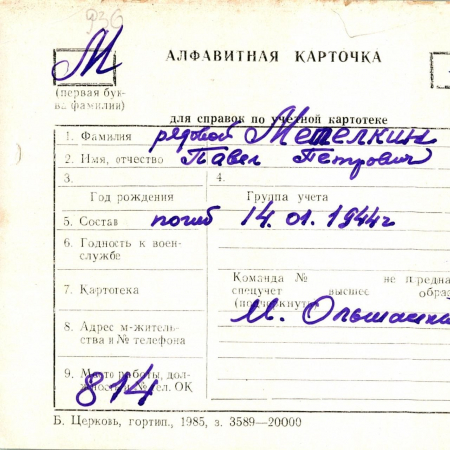 ДЗО
М
АЛФАВИТНАЯ КАРТОЧКА
(первая бук-
ва фамилии)
для справок по учетной картотеке
1. Фамилия рядовой Метелкин
2. Имя, отчество Павел Петрович
3. 4.
Год рождения Группа учета
5. Состав погиб 14.01.1944г
6. Годность к воен-
службе
Команда № не передна
7. Картотека спецучет высшее образ
(подчеркнуть
М. Ольшанка
8. Адрес м-житель-
ства и № телефона
9. Место работы, дол-
жность и № тел. ОК
814
Б. Церковь, гортип., 1985, з. 3589—20000